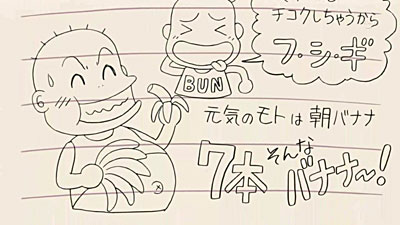 チコクしちゃうから
フ・シ・ギ
BUN
元気のモトは朝バナナ
7本そんなバナナ〜!